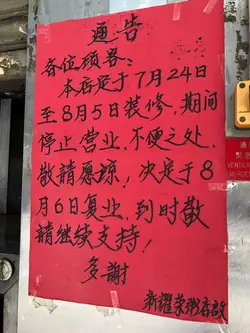 通告
各位顾客：
本店定于7月24日
至8月5日装修，期间
停止营业，不便之处，
敬請愿琼，决定于8
月6日复业，到时敬
請继续支持！
多謝
新耀荣粥店啟
VENTILATI
EMERGEN